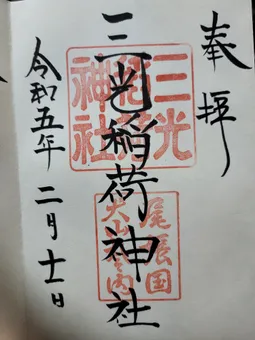 奉拝
三光稲荷神社
令和五年二月十一日
三光稲荷神社
尾張国
犬山城内